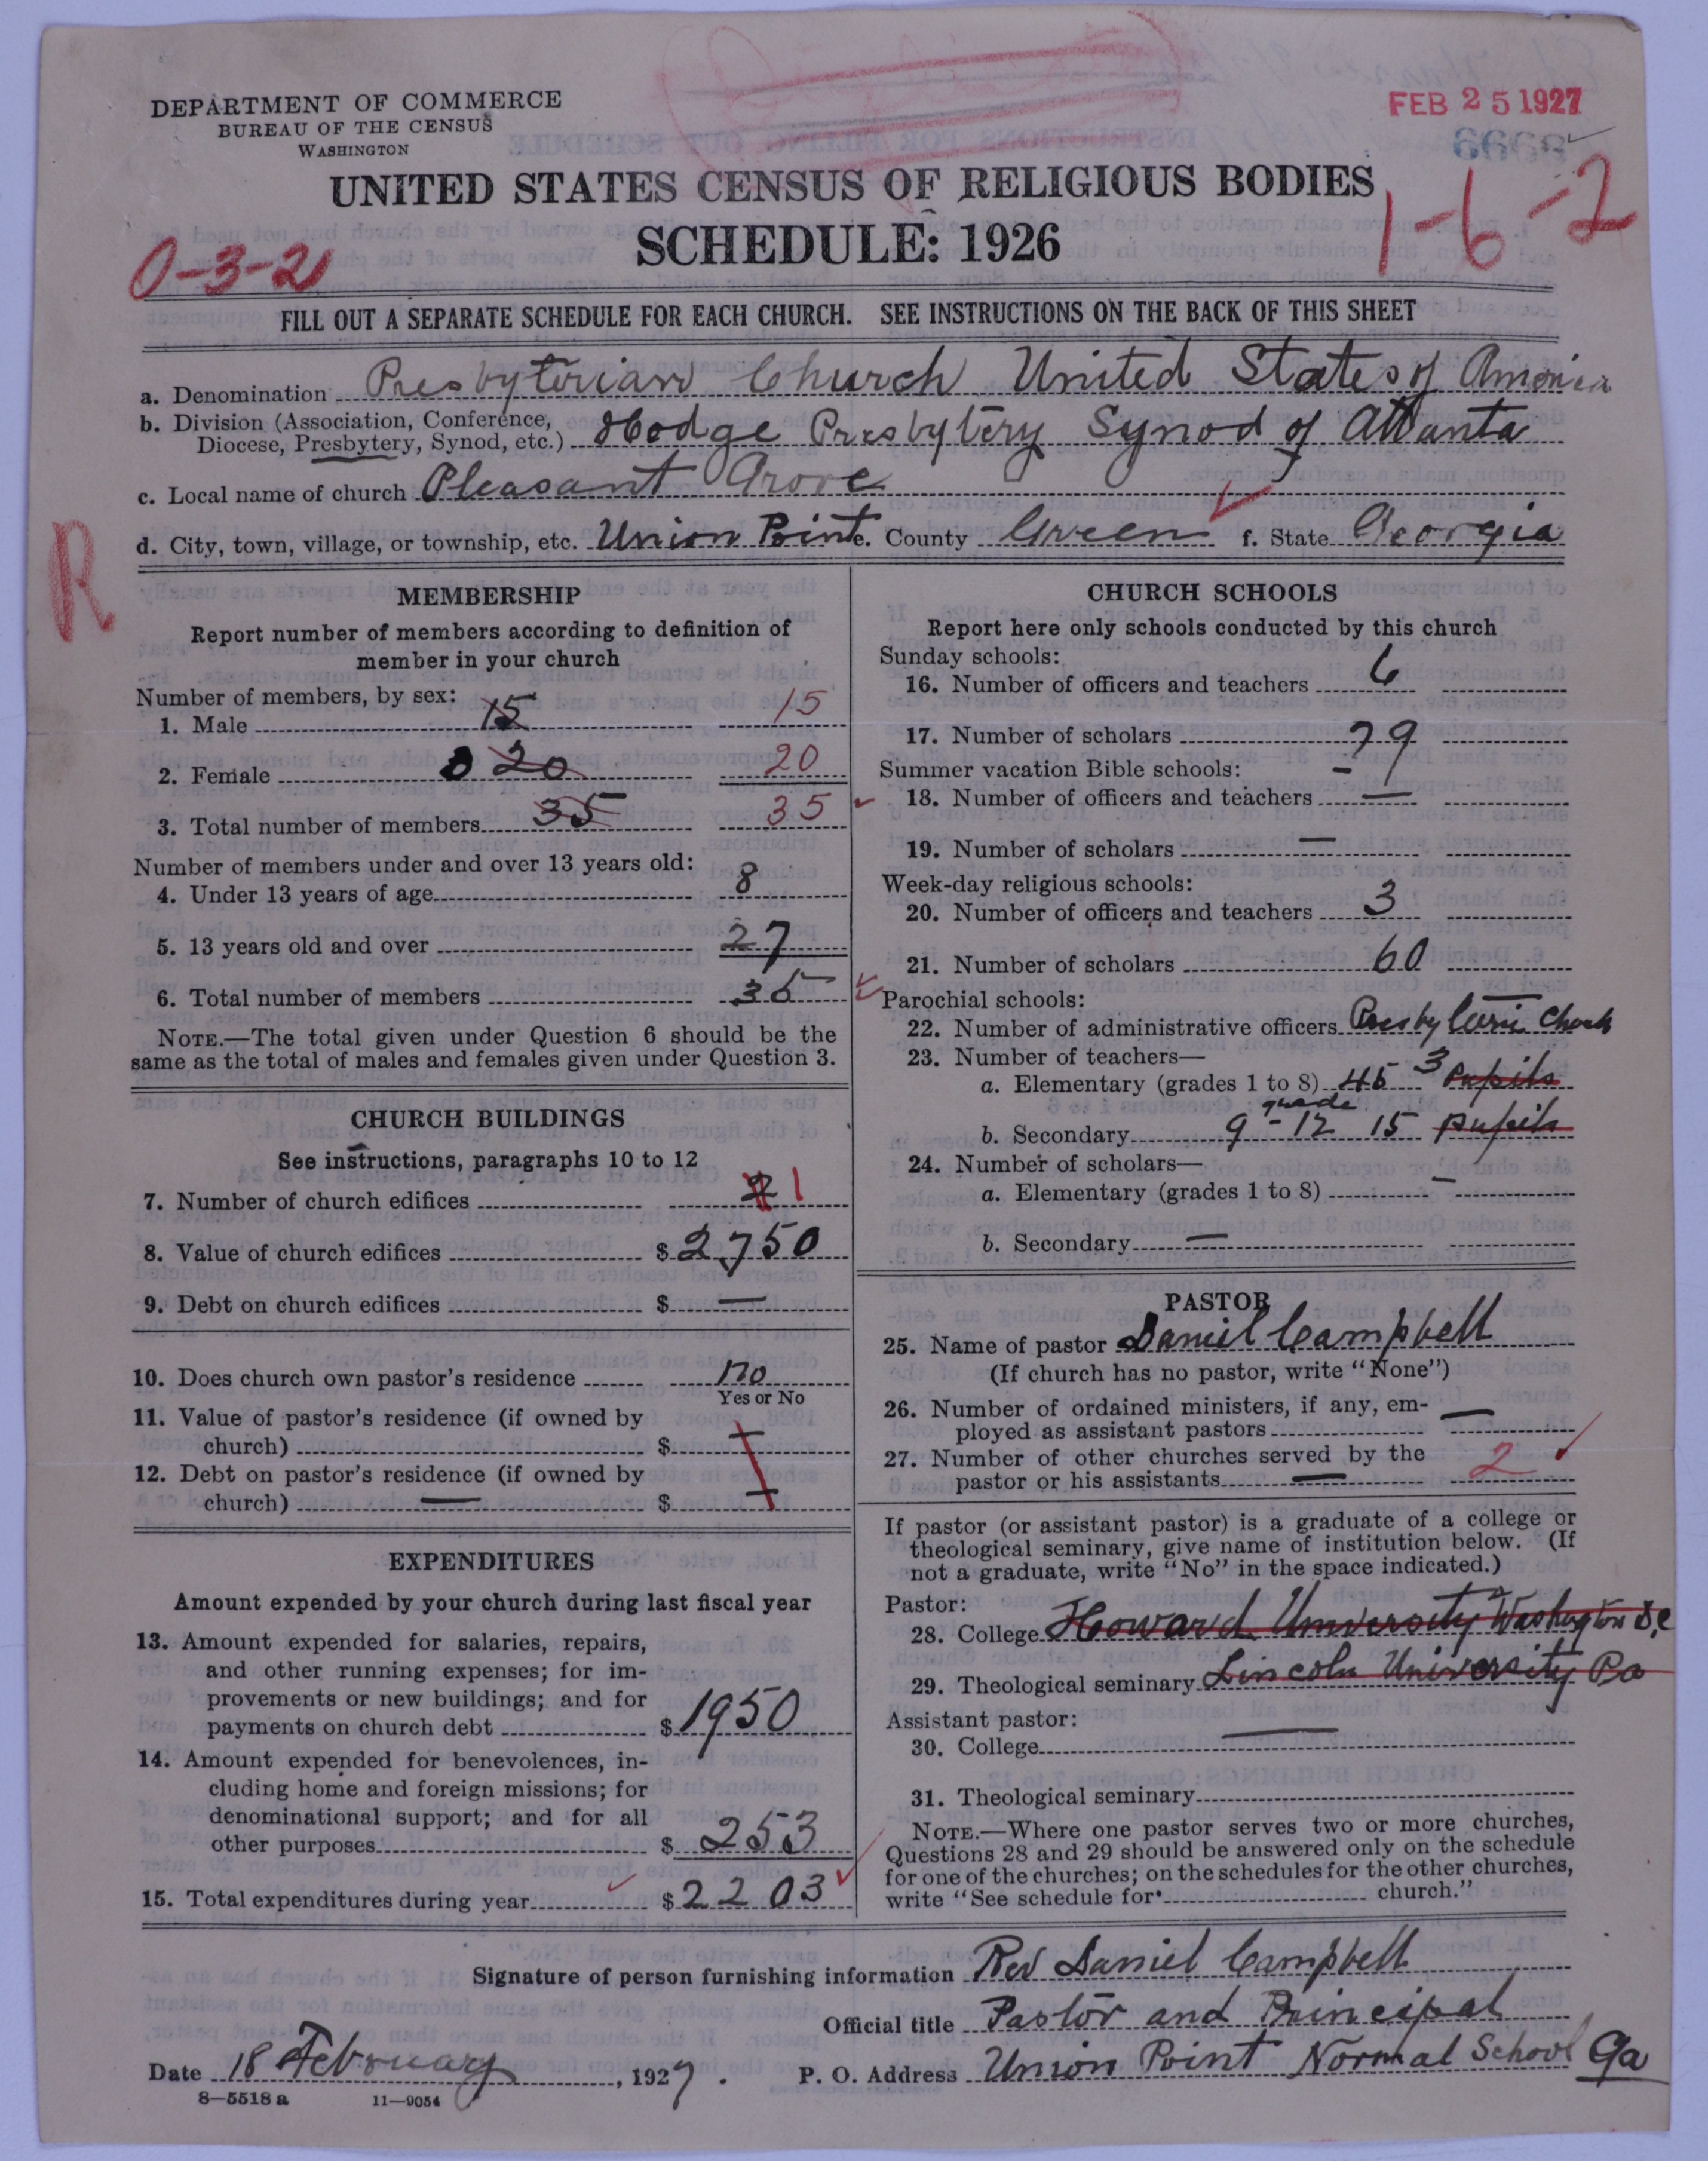 DEPARTMENT OF COMMERCE
BUREAU OF THE CENSUS
WASHINGTON
FEB 25 1927
UNITED STATES CENSUS OF RELIGIOUS BODIES
SCHEDULE: 1926
0-3-2
1-6-2
FILL OUT A SEPARATE SCHEDULE FOR EACH CHURCH. SEE INSTRUCTIONS ON THE BACK OF THIS SHEET
a. Denomination Presbyterian Church United States of America
b. Division (Association, Conference,
Diocese, Presbytery, Synod, etc.) Hodge Presbytery Synod of Atlanta
c. Local name of church Pleasant Grove
d. City, town, village, or township, etc. Union Point e. County Green f. State Georgia
R
MEMBERSHIP
Report number of members according to definition of
member in your church
Number of members, by sex:
1. Male 15 15
2. Female 20 20
3. Total number of members 35 35
Number of members under and over 13 years old:
4. Under 13 years of age 8
5. 13 years old and over 27
6. Total number of members 35
NOTE.—The total given under Question 6 should be the
same as the total of males and females given under Question 3.
CHURCH BUILDINGS
See instructions, paragraphs 10 to 12
7. Number of church edifices 2 1
8. Value of church edifices $ 2750
9. Debt on church edifices $ —
10. Does church own pastor's residence no
Yes or No
11. Value of pastor's residence (if owned by
church) $ —
12. Debt on pastor's residence (if owned by
church) — $ —
EXPENDITURES
Amount expended by your church during last fiscal year
13. Amount expended for salaries, repairs,
and other running expenses; for im-
provements or new buildings; and for
payments on church debt $ 1950
14. Amount expended for benevolences, in-
cluding home and foreign missions; for
denominational support; and for all
other purposes $ 253
15. Total expenditures during year $ 2203
CHURCH SCHOOLS
Report here only schools conducted by this church
Sunday schools:
16. Number of officers and teachers 6
17. Number of scholars 79
Summer vacation Bible schools: –
18. Number of officers and teachers —
19. Number of scholars —
Week-day religious schools:
20. Number of officers and teachers 3
21. Number of scholars 60
Parochial schools: —
22. Number of administrative officers Presbyteri Church
23. Number of teachers—
a. Elementary (grades 1 to 8) 45 3 pupils
b. Secondary grade 9-12 15 pupils
24. Number of scholars—
a. Elementary (grades 1 to 8) –
b. Secondary —
PASTOR
25. Name of pastor Daniel Campbell
(If church has no pastor, write "None")
26. Number of ordained ministers, if any, em-
ployed as assistant pastors —
27. Number of other churches served by the
pastor or his assistants — 2
If pastor (or assistant pastor) is a graduate of a college or
theological seminary, give name of institution below. (If
not a graduate, write "No" in the space indicated.)
Pastor:
28. College Howard University Washington D.C
29. Theological seminary Lincoln University Pa
Assistant pastor:
30. College —
31. Theological seminary
NOTE.—Where one pastor serves two or more churches,
Questions 28 and 29 should be answered only on the schedule
for one of the churches; on the schedules for the other churches,
write "See schedule for church."
Signature of person furnishing information Rev Daniel Campbell
Official title Pastor and Principal
Date 18 February, 1927. P. O. Address Union Point Normal School Ga
8—5518 a 11—9054